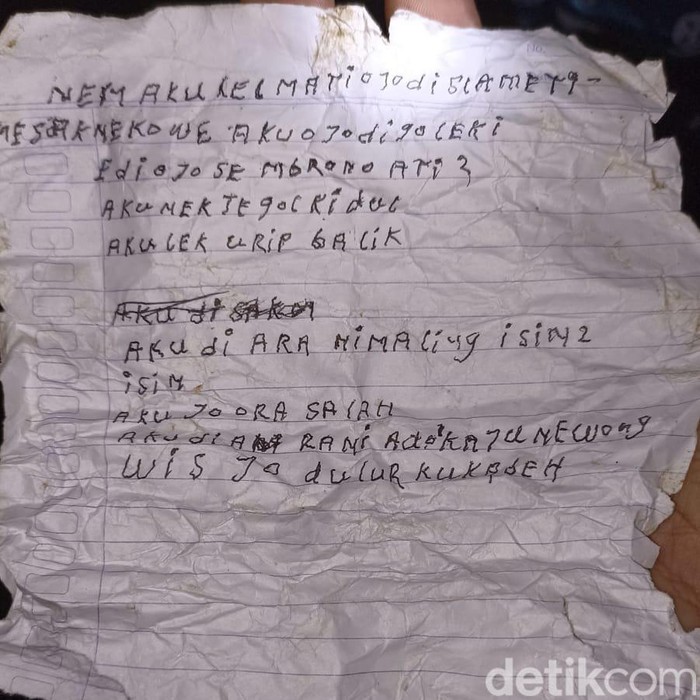 NEM AKU LEL MATI OJO di SLAMETI-
MESAKNE KOWE AKU OJO di GOLEKI
EdI OJO SEMBRONO ATI2
AKU NEK JE GOLKI duL
AKU LEK URIP BALIK
AKU di
AKU di ARANI MALing iSiN2
iSiN
AKU JO ORA SALAH
AKU di RANI Adol KAJUNE WONG
WIS JO dULUR KU KABEH
detikcom